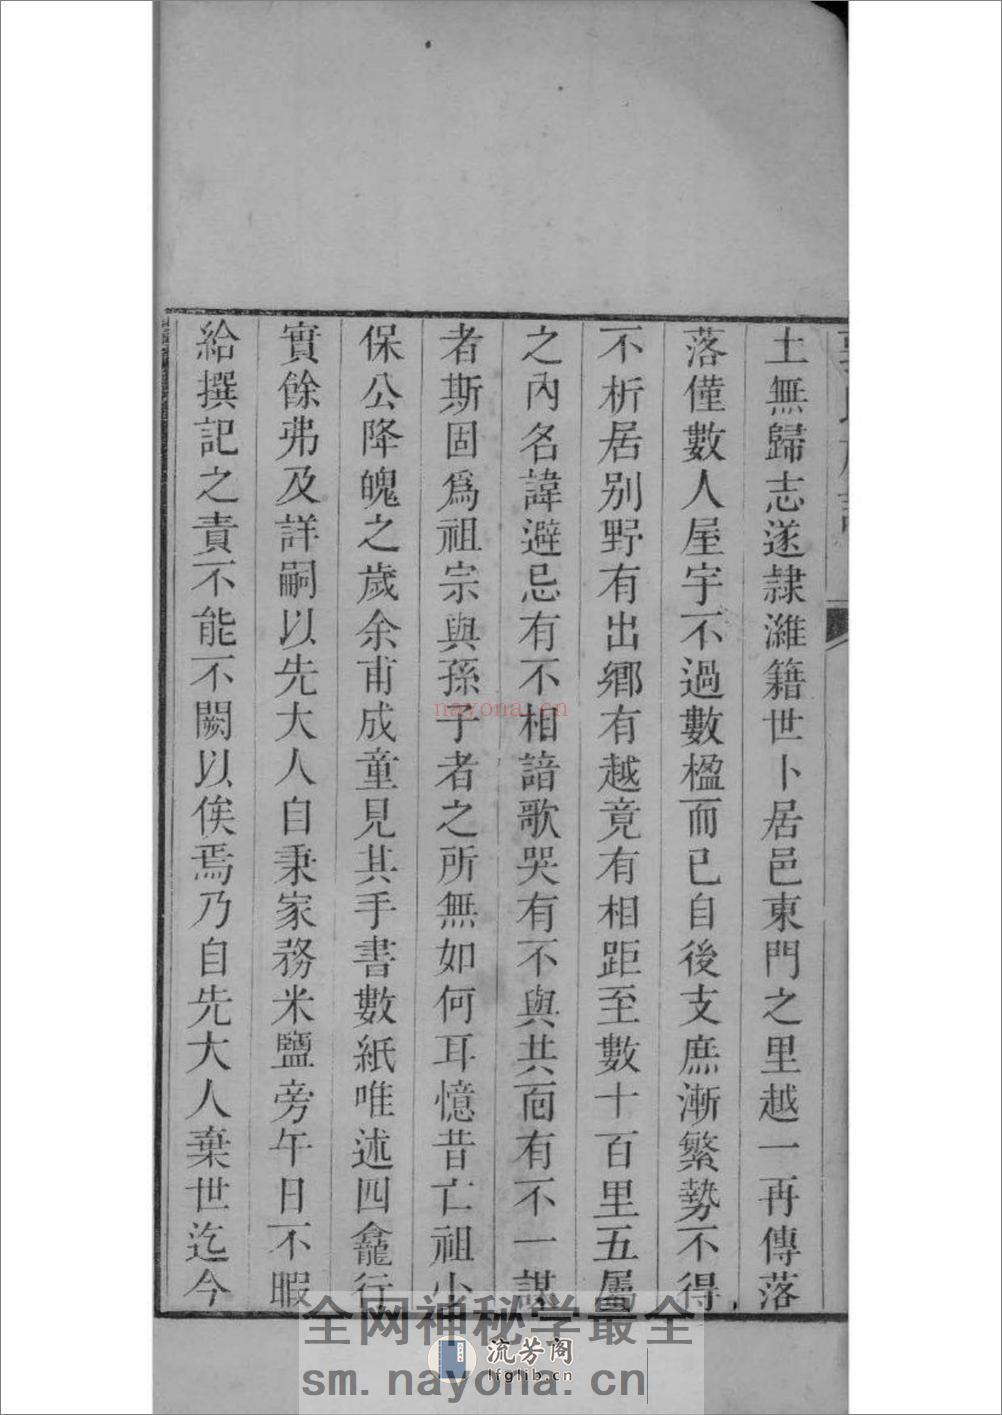 土無歸志遂隷濰籍世卜居邑東門之里越一再傳落
落僅數人屋宇不過數楹而已自後支庶漸繁勢不得
不析居别野有出鄉有越竟有相距至數十百里五屬
之內名諱避忌有不相諳歌哭有不與共面有不一謀
者斯固爲祖宗與孫子者之所無如何耳憶昔亡祖少
保公降魄之歲余甫成童見其手書數紙唯述四龕行
實餘弗及詳嗣以先大人自秉家務米鹽旁午日不暇
給撰記之責不能不闕以俟焉乃自先大人棄世迄今
nayona.cn
全网神秘学最全
流芳阁
lfglib.cn
sm.nayona.cn